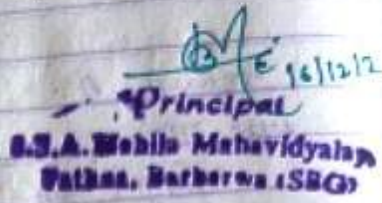 16/12/2
Principal
B.S.A. Mahila Mahavidyalay
Pathna, Barharwa (SBG)